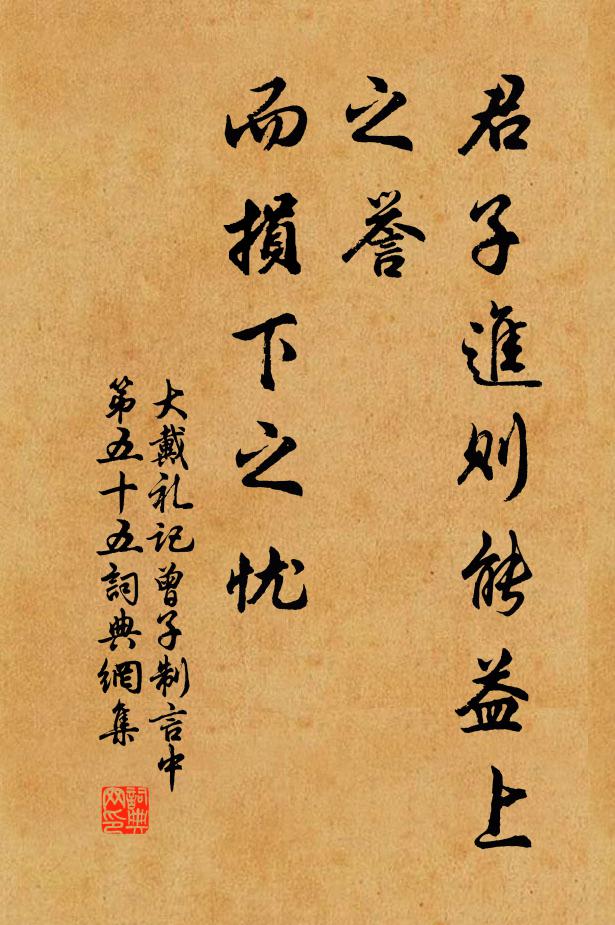 君子進則能益上
之譽
而損下之忧
大戴礼記曾子制言中
第五十五詞典網集
詞典
网印